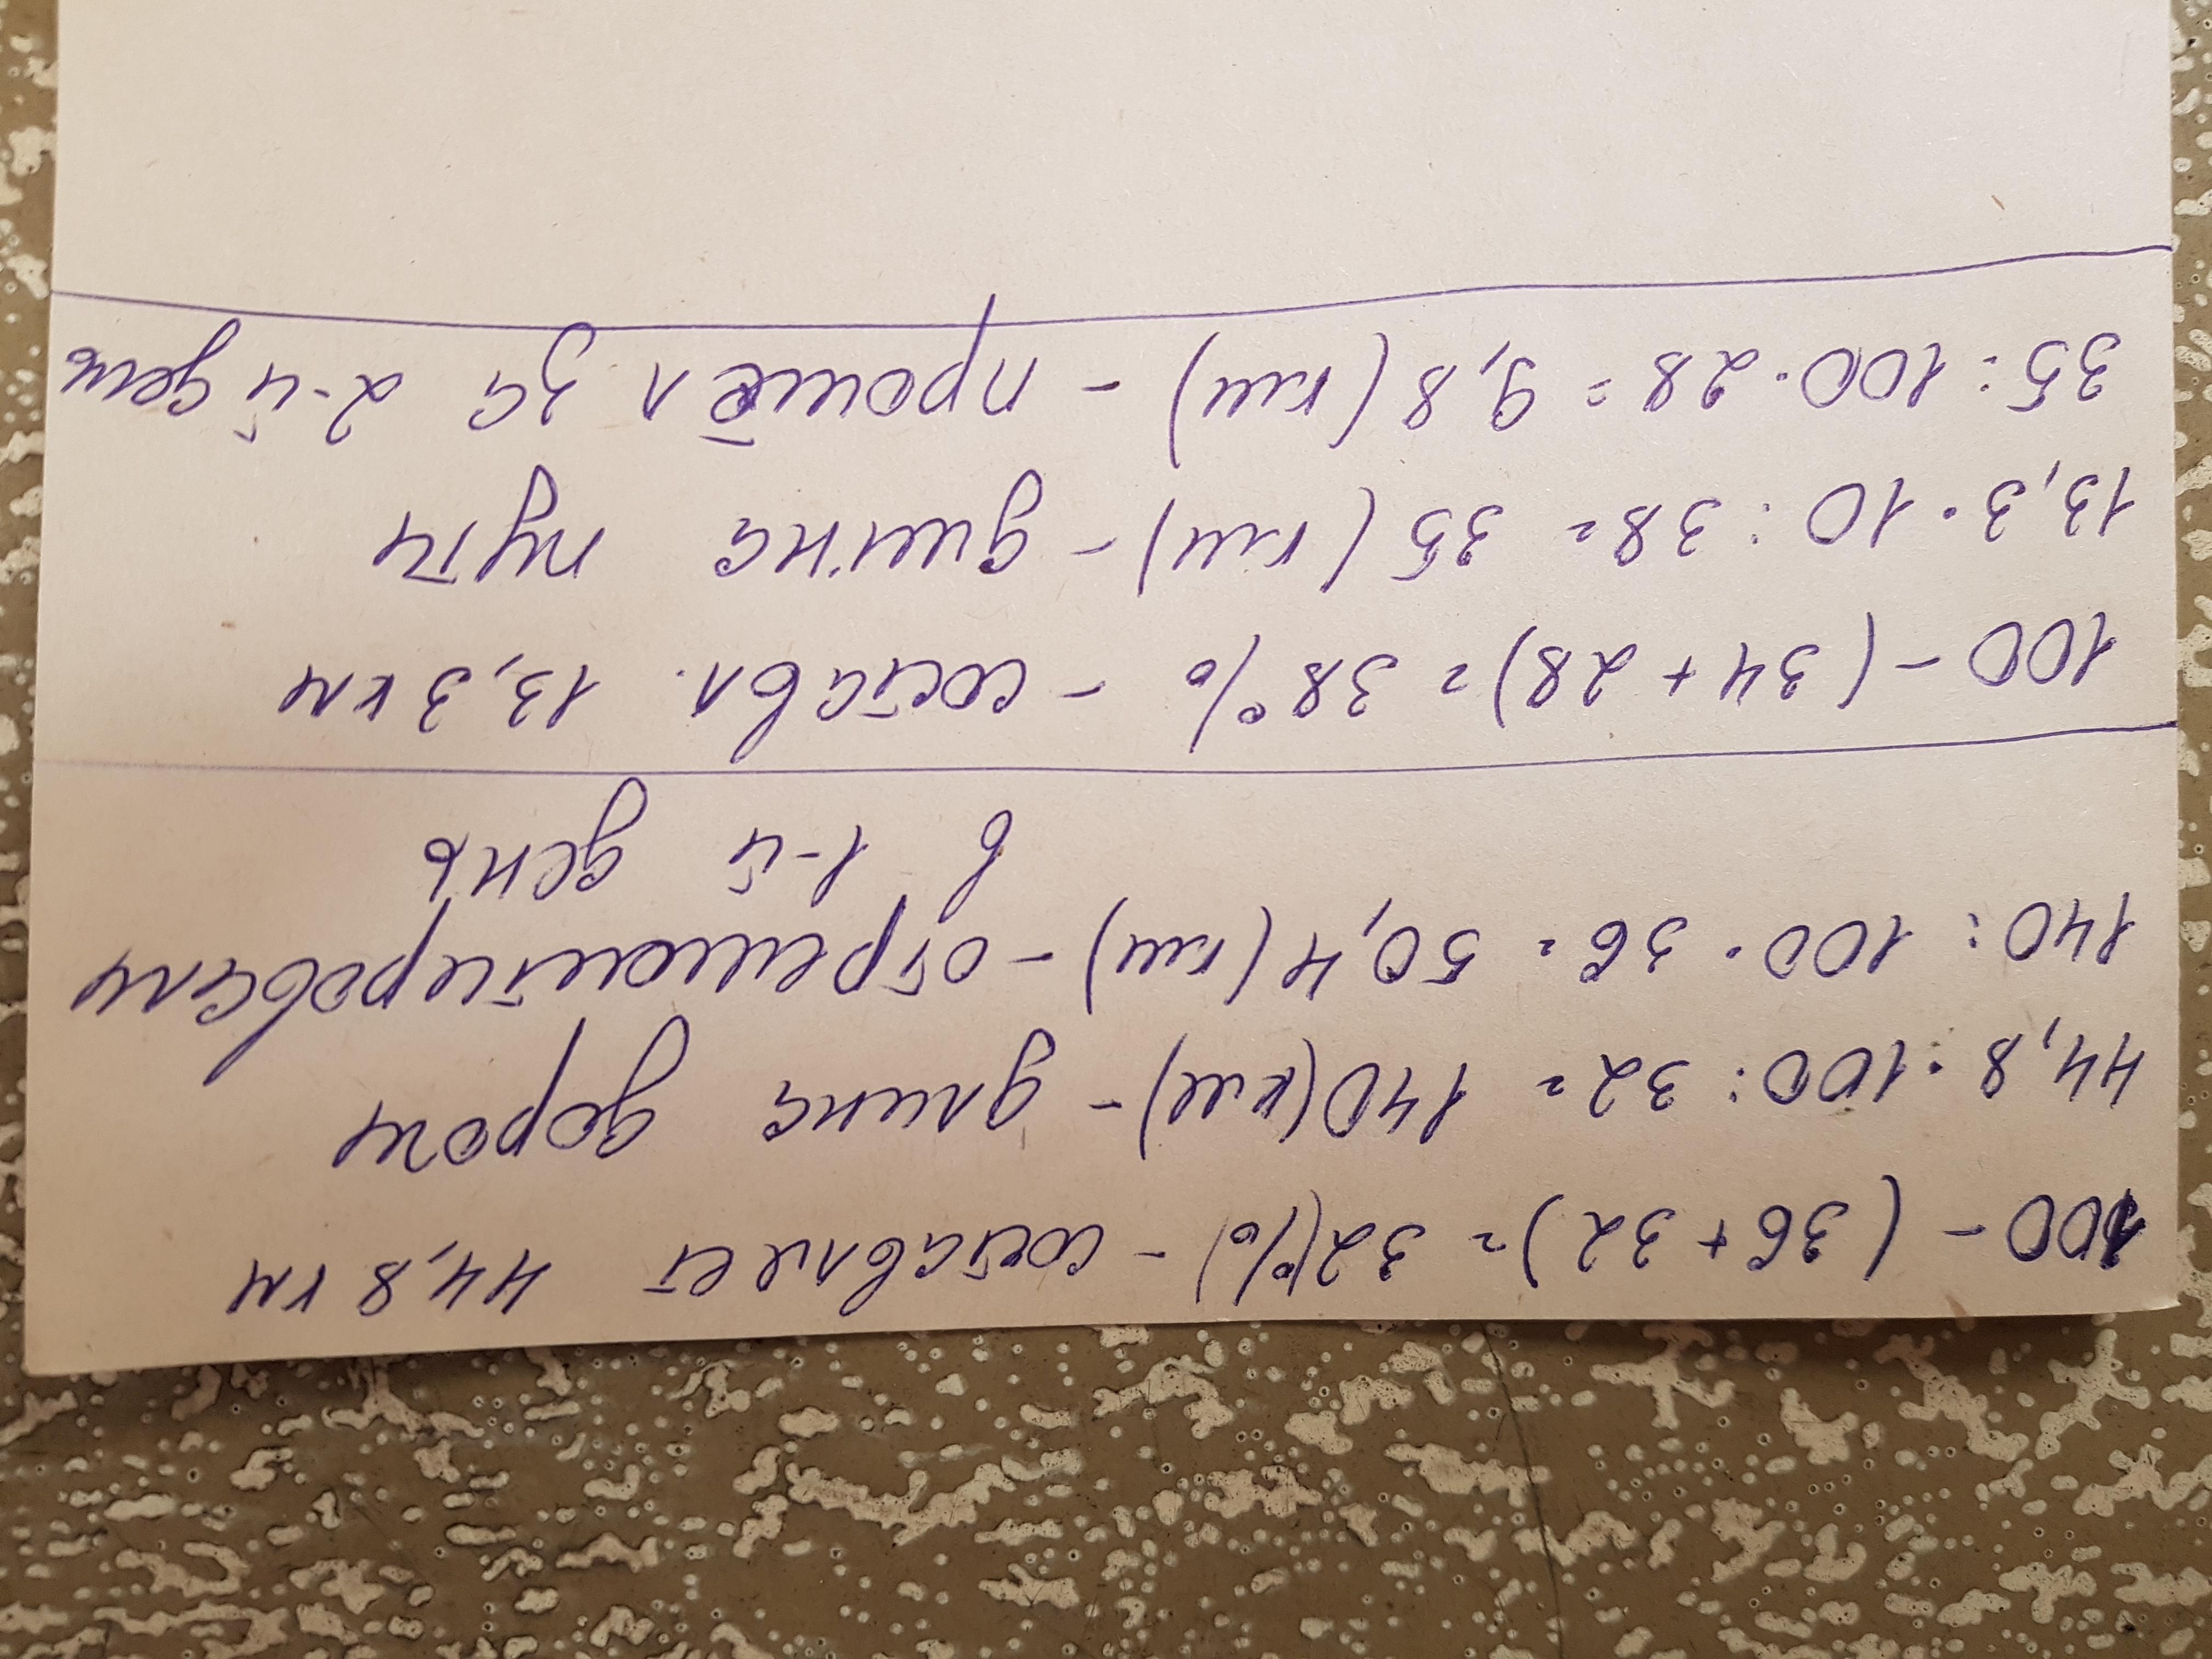 100 - (36 + 32) = 32(%) - составляет 44,8 км
44,8 · 100 : 32 = 140 (км) - длина дороги
140 : 100 · 36 = 50,4 (км) - отремонтировали
в 1-й день
100 - (34 + 28) = 38% - составл. 13,3 км
13,3 · 10 : 38 = 35 (км) - длина пути
35 : 100 · 28 = 9,8 (км) - прошёл за 2-й день